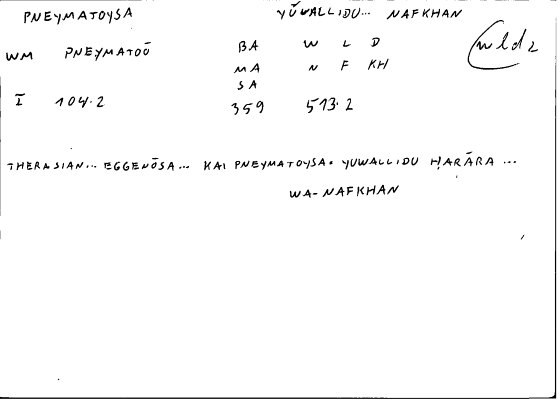 PNEYMATOYSA YŪWALLIDU... NAFKHAN
WM PNEYMATOŌ BA W L D wld2
MA N F KH
SA
I 104.2 359 513.2
THERASIAN... EGGENŌSA... KAI PNEYMATOYSA. YUWALLIDU ḤARĀRA ...
WA-NAFKHAN